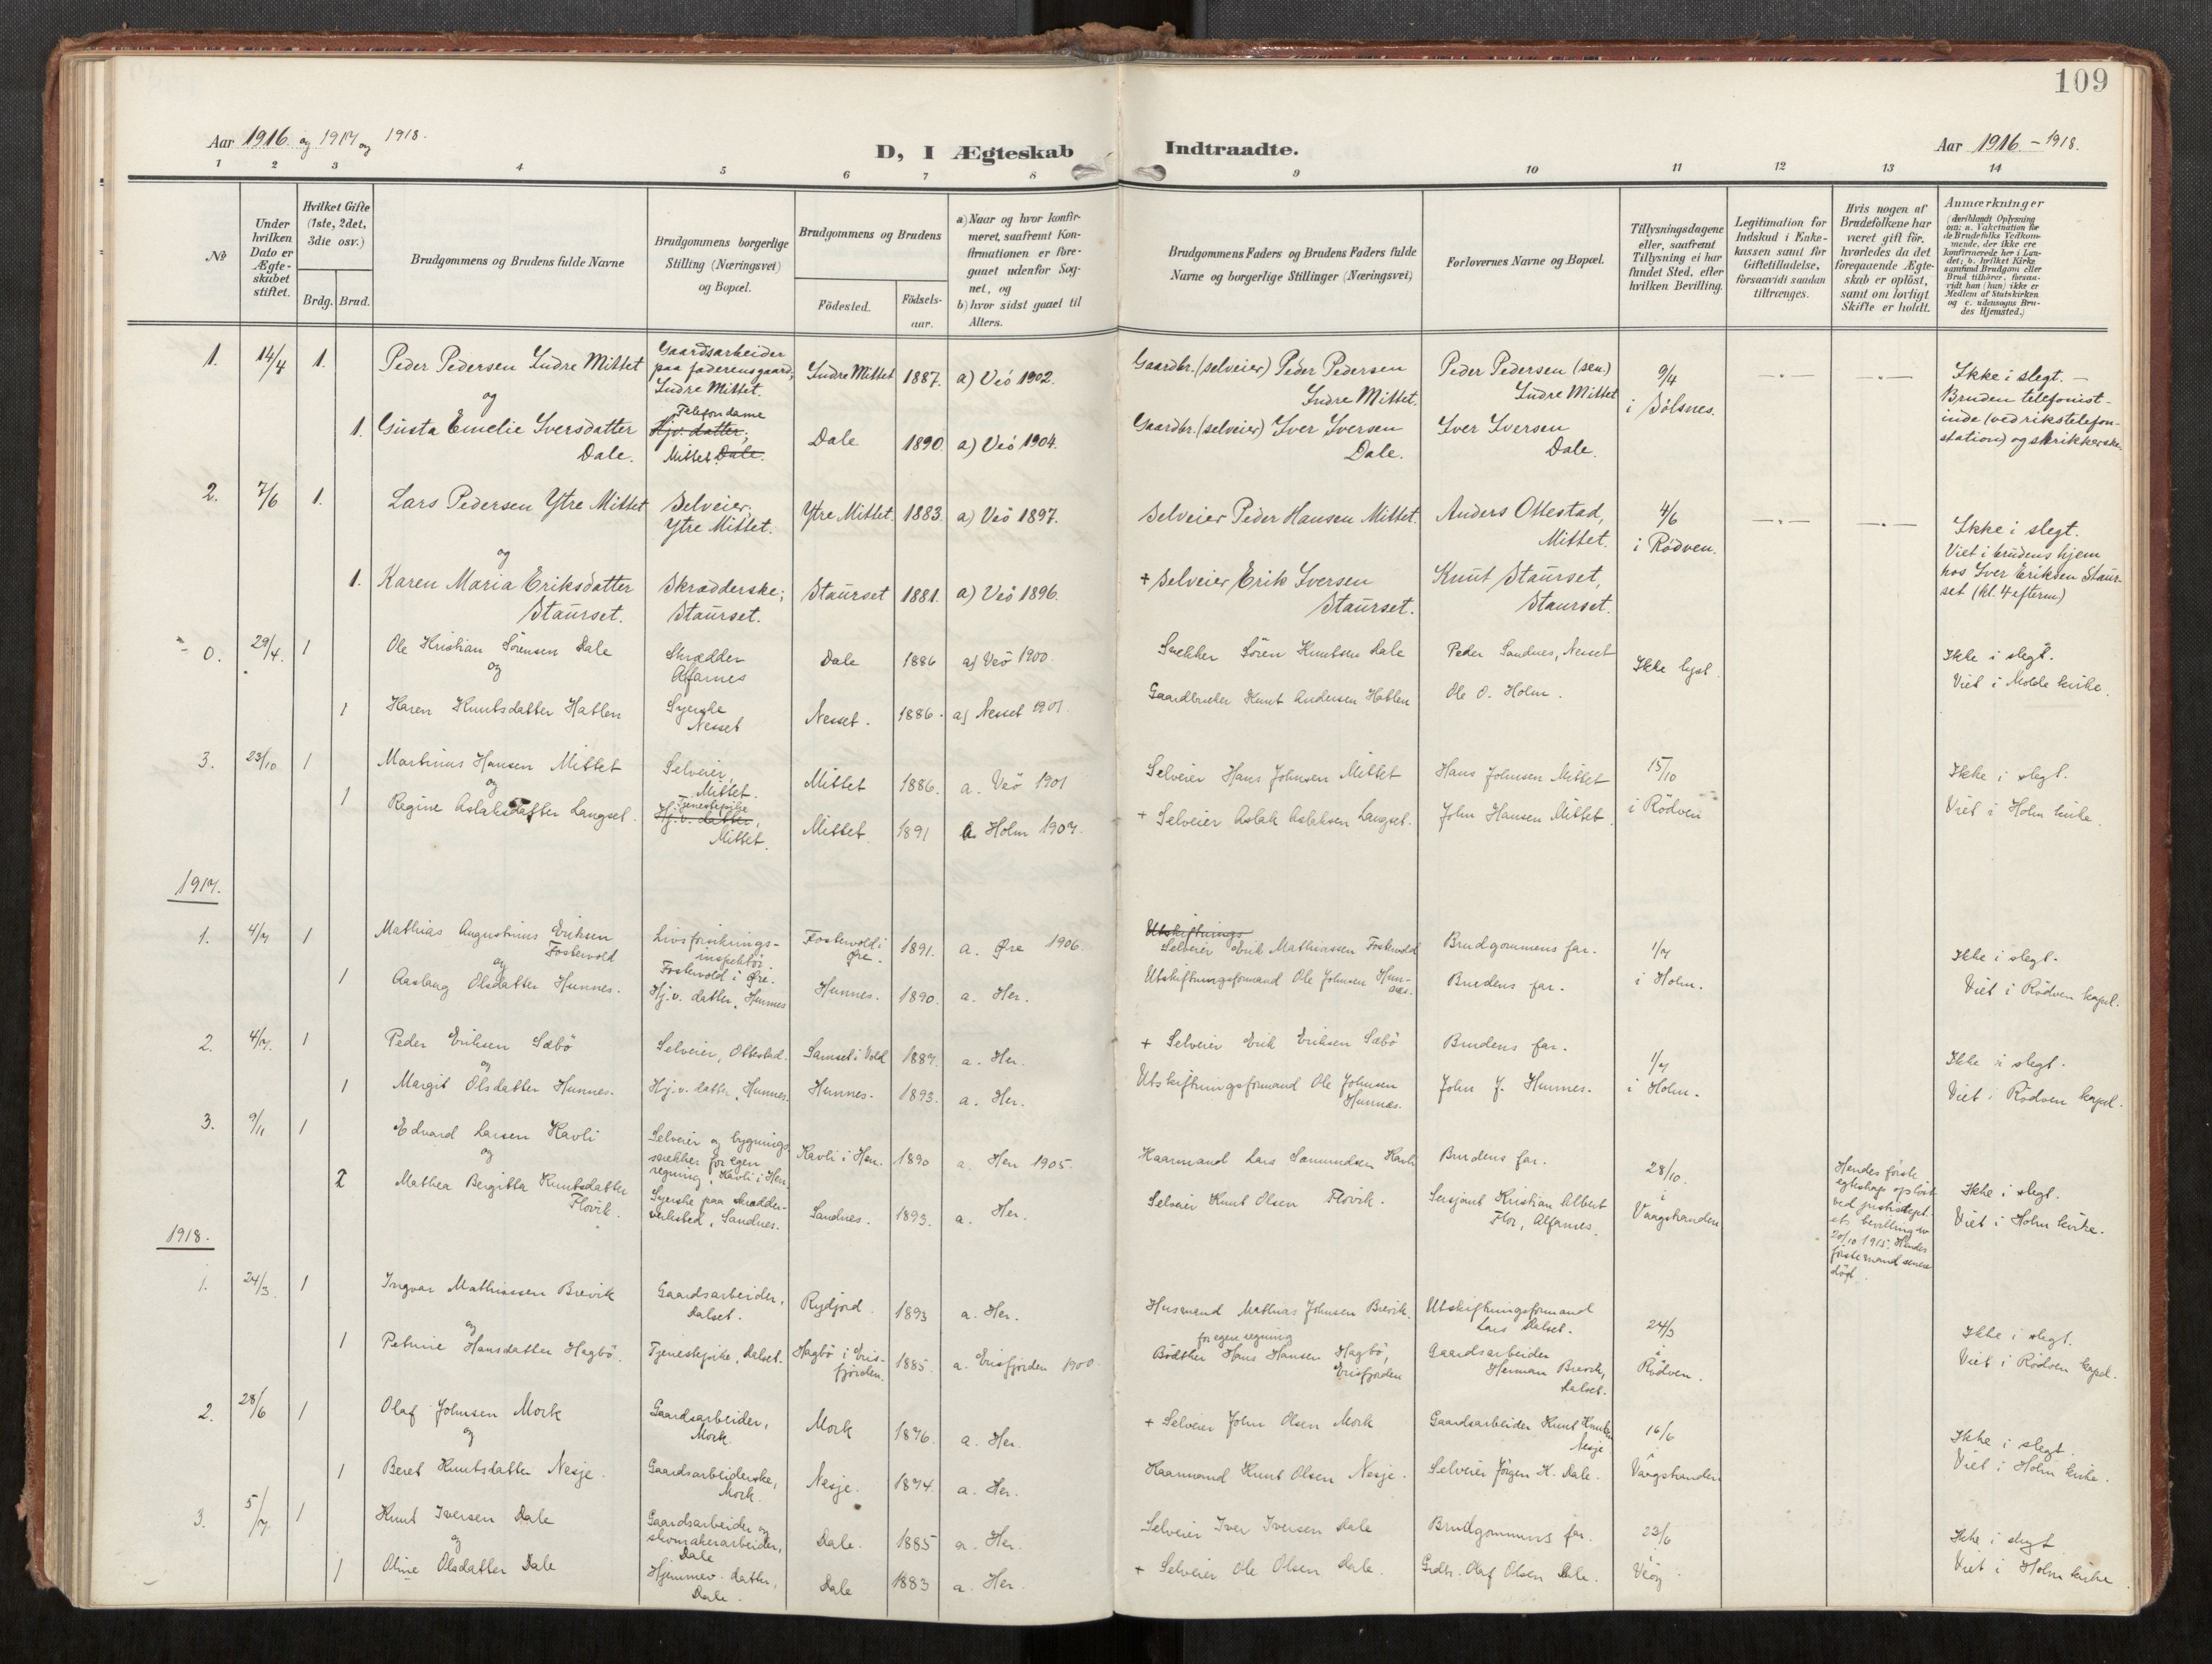 109
Aar 1916. og 1917 og 1918.
D, I Ægteskab Indtraadte.
Aar 1916. - 1918.
1 2 3 4 5 6 7 8 9 10 11 12 13 14
No
Under hvilken Dato er Ægteskabet stiftet.
Hvilket Gifte (1ste, 2det, 3die osv.)
Brdg. Brud.
Brudgommens og Brudens fulde Navne
Brudgommens borgerlige Stilling (Næringsvei) og Bopæl.
Brudgommens og Brudens
Födested.
Födselsaar.
a) Naar og hvor konfirmeret, saafremt Konfirmationen er foregaaet udenfor Sognet, og
b) hvor sidst gaaet til Alters.
Brudgommens Faders og Brudens Faders fulde Navne og borgerlige Stillinger (Næringsvei)
Forlovernes Navne og Bopæl.
Tillysningsdagene eller, saafremt Tillysning ei har fundet Sted, efter hvilken Bevilling.
Legitimation for Indskud i Enkekassen samt for Giftetilladelse, forsaavidt saadan tiltrænges.
Hvis nogen af Brudefolkene har været gift för, hvorledes da det foregaaende Ægteskab er oplöst, samt om lovligt Skifte er holdt.
Anmærkninger
(deriblandt Oplysning om: a. Vakcination for de Brudefolks Vedkommende, der ikke ere konfirmerede her i Landet; b. hvilket Kirkesamfund Brudgom eller Brud tilhörer, forsaavidt han (hun) ikke er Medlem af Statskirken og c. udensogns Brudes Hjemsted.)
1. 14/4 1. Peder Pedersen Indre Mittet
Gaardsarbeider paa faderensgaard, Indre Mittet.
Indre Mittet 1887. a) Veö 1902.
Gaardbr. (selveier) Peder Pedersen Indre Mittet.
Peder Pedersen (sen.) Indre Mittet
9/4 i Sölsnes.
Ikke i slegt. -
Bruden telefonistinde (ved rikstelefonstation) og strikkerske.
og
1. Gusta Emelie Iversdatter Dale.
Telefondame
Hjv. datter,
Mittet. Dale.
Dale 1890. a) Veö 1904.
Gaardbr. (selveier) Iver Iversen Dale.
Iver Iversen Dale.
2. 7/6 1. Lars Pedersen Ytre Mittet
Selveier, Ytre Mittet.
Ytre Mittet. 1883. a) Veö 1897.
Selveier Peder Hansen Mittet.
Anders Ottestad, Mittet.
4/6 i Rödven.
Ikke i slegt.
Viet i brudens hjem hos Iver Eriksen Staurset (kl. 4 efterm)
og
1. Karen Maria Eriksdatter Staurset.
Skrædderske; Staurset.
Staurset 1881. a) Veö 1896.
+ Selveier Erik Iversen Staurset.
Knut Staurset, Staurset.
0. 29/4. 1 Ole Kristian Sörensen Dale
Skrædder Alfarnes
Dale 1886 a) Veö 1900.
Snekker Sören Knutsen Dale
Peder Sandnes, Nesset
Ikke lyst.
Ikke i slegt.
Viet i Molde kirke.
og
1 Karen Knutsdatter Hatlen
Syerske Nesset
Nesset. 1886. a) Nesset 1901.
Gaardbruker Knut Andersen Hatlen
Ole O. Holm.
3. 23/10 1 Martinus Hansen Mittet
Selveier, Mittet.
Mittet 1886. a. Veö 1901
Selveier Hans Johnsen Mittet
Hans Johnsen Mittet
15/10 i Rödven
Ikke i slegt.
Viet i Holm kirke.
og
1 Regine Aslaksdatter Langset.
Tjenestepike
Hj.v. datter,
Mittet.
Mittet 1891 a. Holm 1907.
+ Selveier Aslak Aslaksen Langset.
John Hansen Mittet.
1917.
1. 4/7 1 Mathias Augustinus Eriksen Fostervold
Livsforsikringsinspektör. Fostervold i Öre.
Fostervold i Öre. 1891. a. Öre 1906.
Utskiftnings
Selveier Erik Mathiassen Fostervold
Brudgommens far.
1/7 i Holm.
Ikke i slegt.
Viet i Rödven kapel.
og
1 Aaslaug Olsdatter Hunnes.
Hj.v. datter, Hunnes
Hunnes. 1890. a. Her.
Utskiftningsformand Ole Johnsen Hunnes.
Brudens far.
2. 4/7. 1 Peder Eriksen Sæbö
Selveier, Ottestad.
Samset i Vold 1887. a. Her.
+ Selveier Erik Eriksen Sæbö
Brudens far.
1/7 i Holm.
Ikke i slegt.
Viet i Rödven kapel.
og
1 Margit Olsdatter Hunnes.
Hj.v. datter, Hunnes.
Hunnes. 1893. a. Her.
Utskiftningsformand Ole Johnsen Hunnes.
John J. Hunnes.
3. 9/11 1 Edvard Larsen Kavli
Selveier og bygningssnekker for egen regning, Kavli i Hen.
Kavli i Hen. 1890 a. Hen 1905.
Kaarmand Lars Samundsen Kavli
Brudens far.
28/10. i Vaagstranden
Hendes förste egteskap oplöst ved justisdept.ets bevilling av 20/10 1915. Hendes förste mand senere död.
Ikke i slegt.
Viet i Holm kirke.
og
2 Mathea Bergitta Knutsdatter Flovik.
Syerske paa skrædderverksted, Sandnes.
Sandnes. 1893. a. Her.
Selveier Knut Olsen Flovik.
Sersjant Kristian Albert Flor, Alfarnes.
1918.
1. 24/3. 1 Ingvar Mathiassen Brevik
Gaardsarbeider, Dalset.
Rydjord. 1893 a. Her.
Husmand Mathias Johnsen Brevik.
Utskiftningsformand Lars Dalset.
24/3 i Rödven.
Ikke i slegt.
Viet i Rödven kapel.
og
1 Petrine Hansdatter Hagbö.
Tjenestepike, Dalset.
Hagbö i Erisfjorden. 1885. a. Erisfjorden 1900.
for egen regning
Bödker Hans Hansen Hagbö, Erisfjorden
Gaardsarbeider Herman Brevik, Dalset.
2. 28/6 1 Olaf Johnsen Mork
Gaardsarbeider, Mork.
Mork 1876. a. Her.
+ Selveier John Olsen Mork
Gaardsarbeider Knut Knutsen Nesje
16/6 i Vaagstranden
Ikke i slegt.
Viet i Holm kirke.
og
1 Beret Knutsdatter Nesje.
Gaardsarbeiderske, Mork.
Nesje. 1874. a. Her.
Kaarmand Knut Olsen Nesje.
Selveier Jörgen K. Dale.
3. 5/7. 1 Knut Iversen Dale
Gaardsarbeider og skomakerarbeider, Dale
Dale. 1885 a. Her.
Selveier Iver Iversen Dale
Brudgommens far.
23/6 Veöy
Ikke i slegt
Viet i Holm kirke
og
1 Oline Olsdatter Dale
Hjemmev. datter, Dale.
Dale 1883 a. Her.
+ Selveier Ole Olsen Dale.
Grdbr. Olaf Olsen Dale.